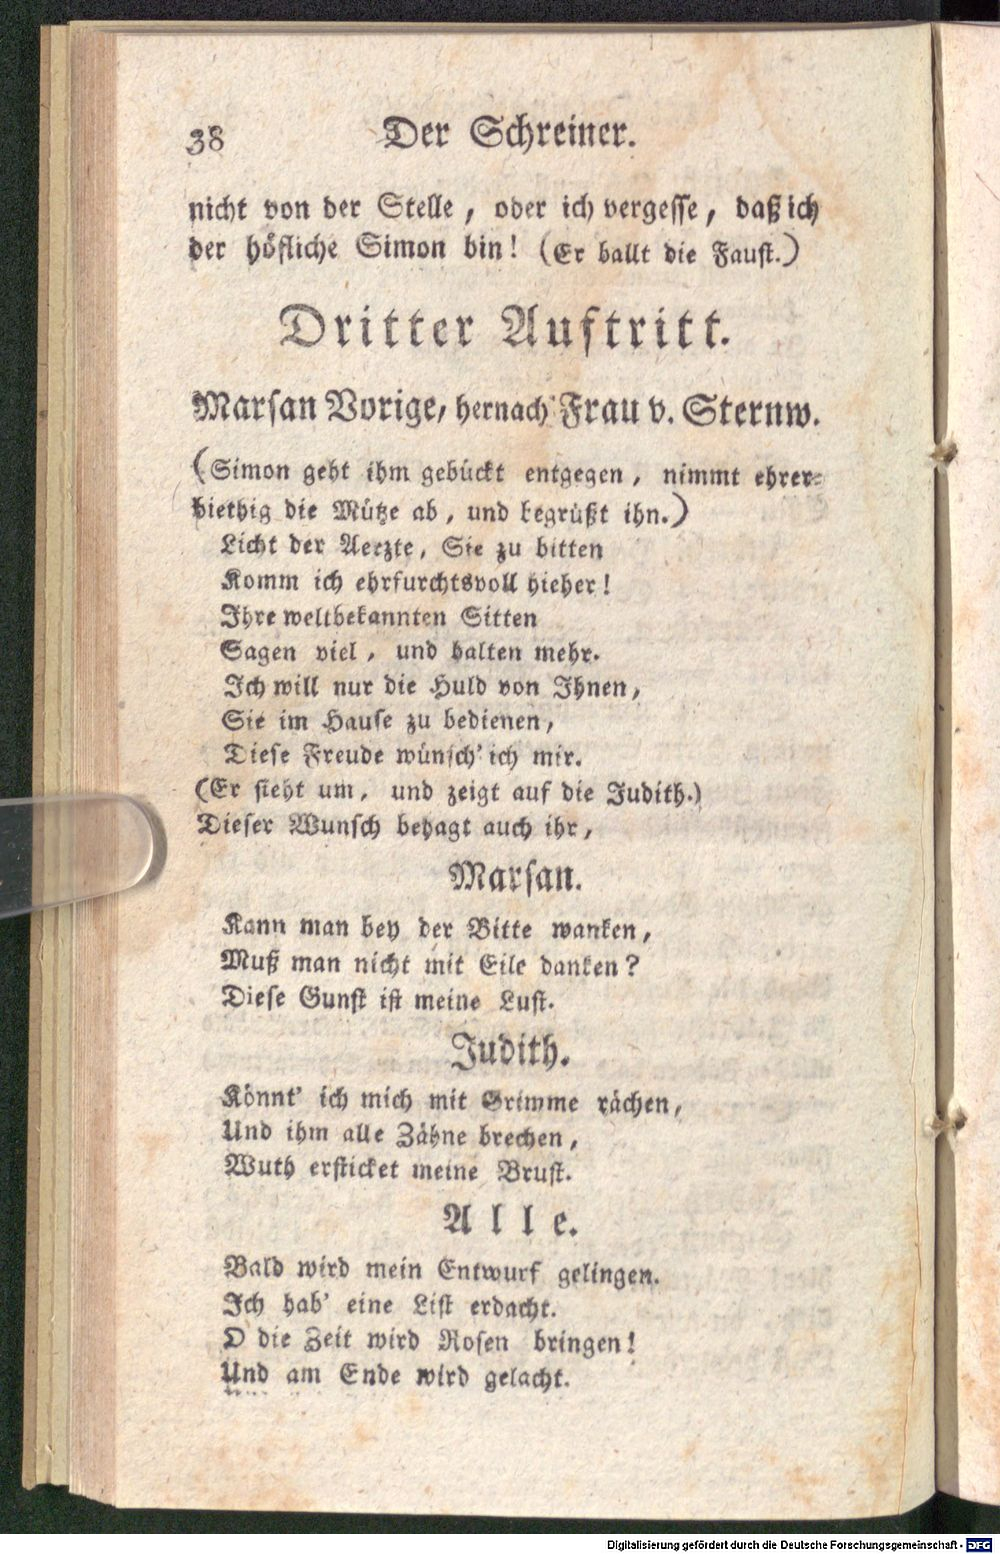 38 Der Schreiner.
nicht von der Stelle, oder ich vergesse, daß ich
der höfliche Simon bin! (Er ballt die Faust.)
Dritter Auftritt.
Marsan Vorige, hernach Frau v. Sternw.
(Simon geht ihm gebückt entgegen, nimmt ehrer-
biethig die Mütze ab, und begrüßt ihn.)
Licht der Aerzte, Sie zu bitten
Komm ich ehrfurchtsvoll hieher!
Ihre weltbekannten Sitten
Sagen viel, und halten mehr.
Ich will nur die Huld von Ihnen,
Sie im Hause zu bedienen,
Diese Freude wünsch' ich mir.
(Er sieht um, und zeigt auf die Judith.)
Dieser Wunsch behagt auch ihr,
Marsan.
Kann man bey der Bitte wanken,
Muß man nicht mit Eile danken?
Diese Gunst ist meine Lust.
Judith.
Könnt' ich mich mit Grimme rächen,
Und ihm alle Zähne brechen,
Wuth ersticket meine Brust.
Alle.
Bald wird mein Entwurf gelingen.
Ich hab' eine List erdacht.
O die Zeit wird Rosen bringen!
Und am Ende wird gelacht.
Digitalisierung gefördert durch die Deutsche Forschungsgemeinschaft - DFG